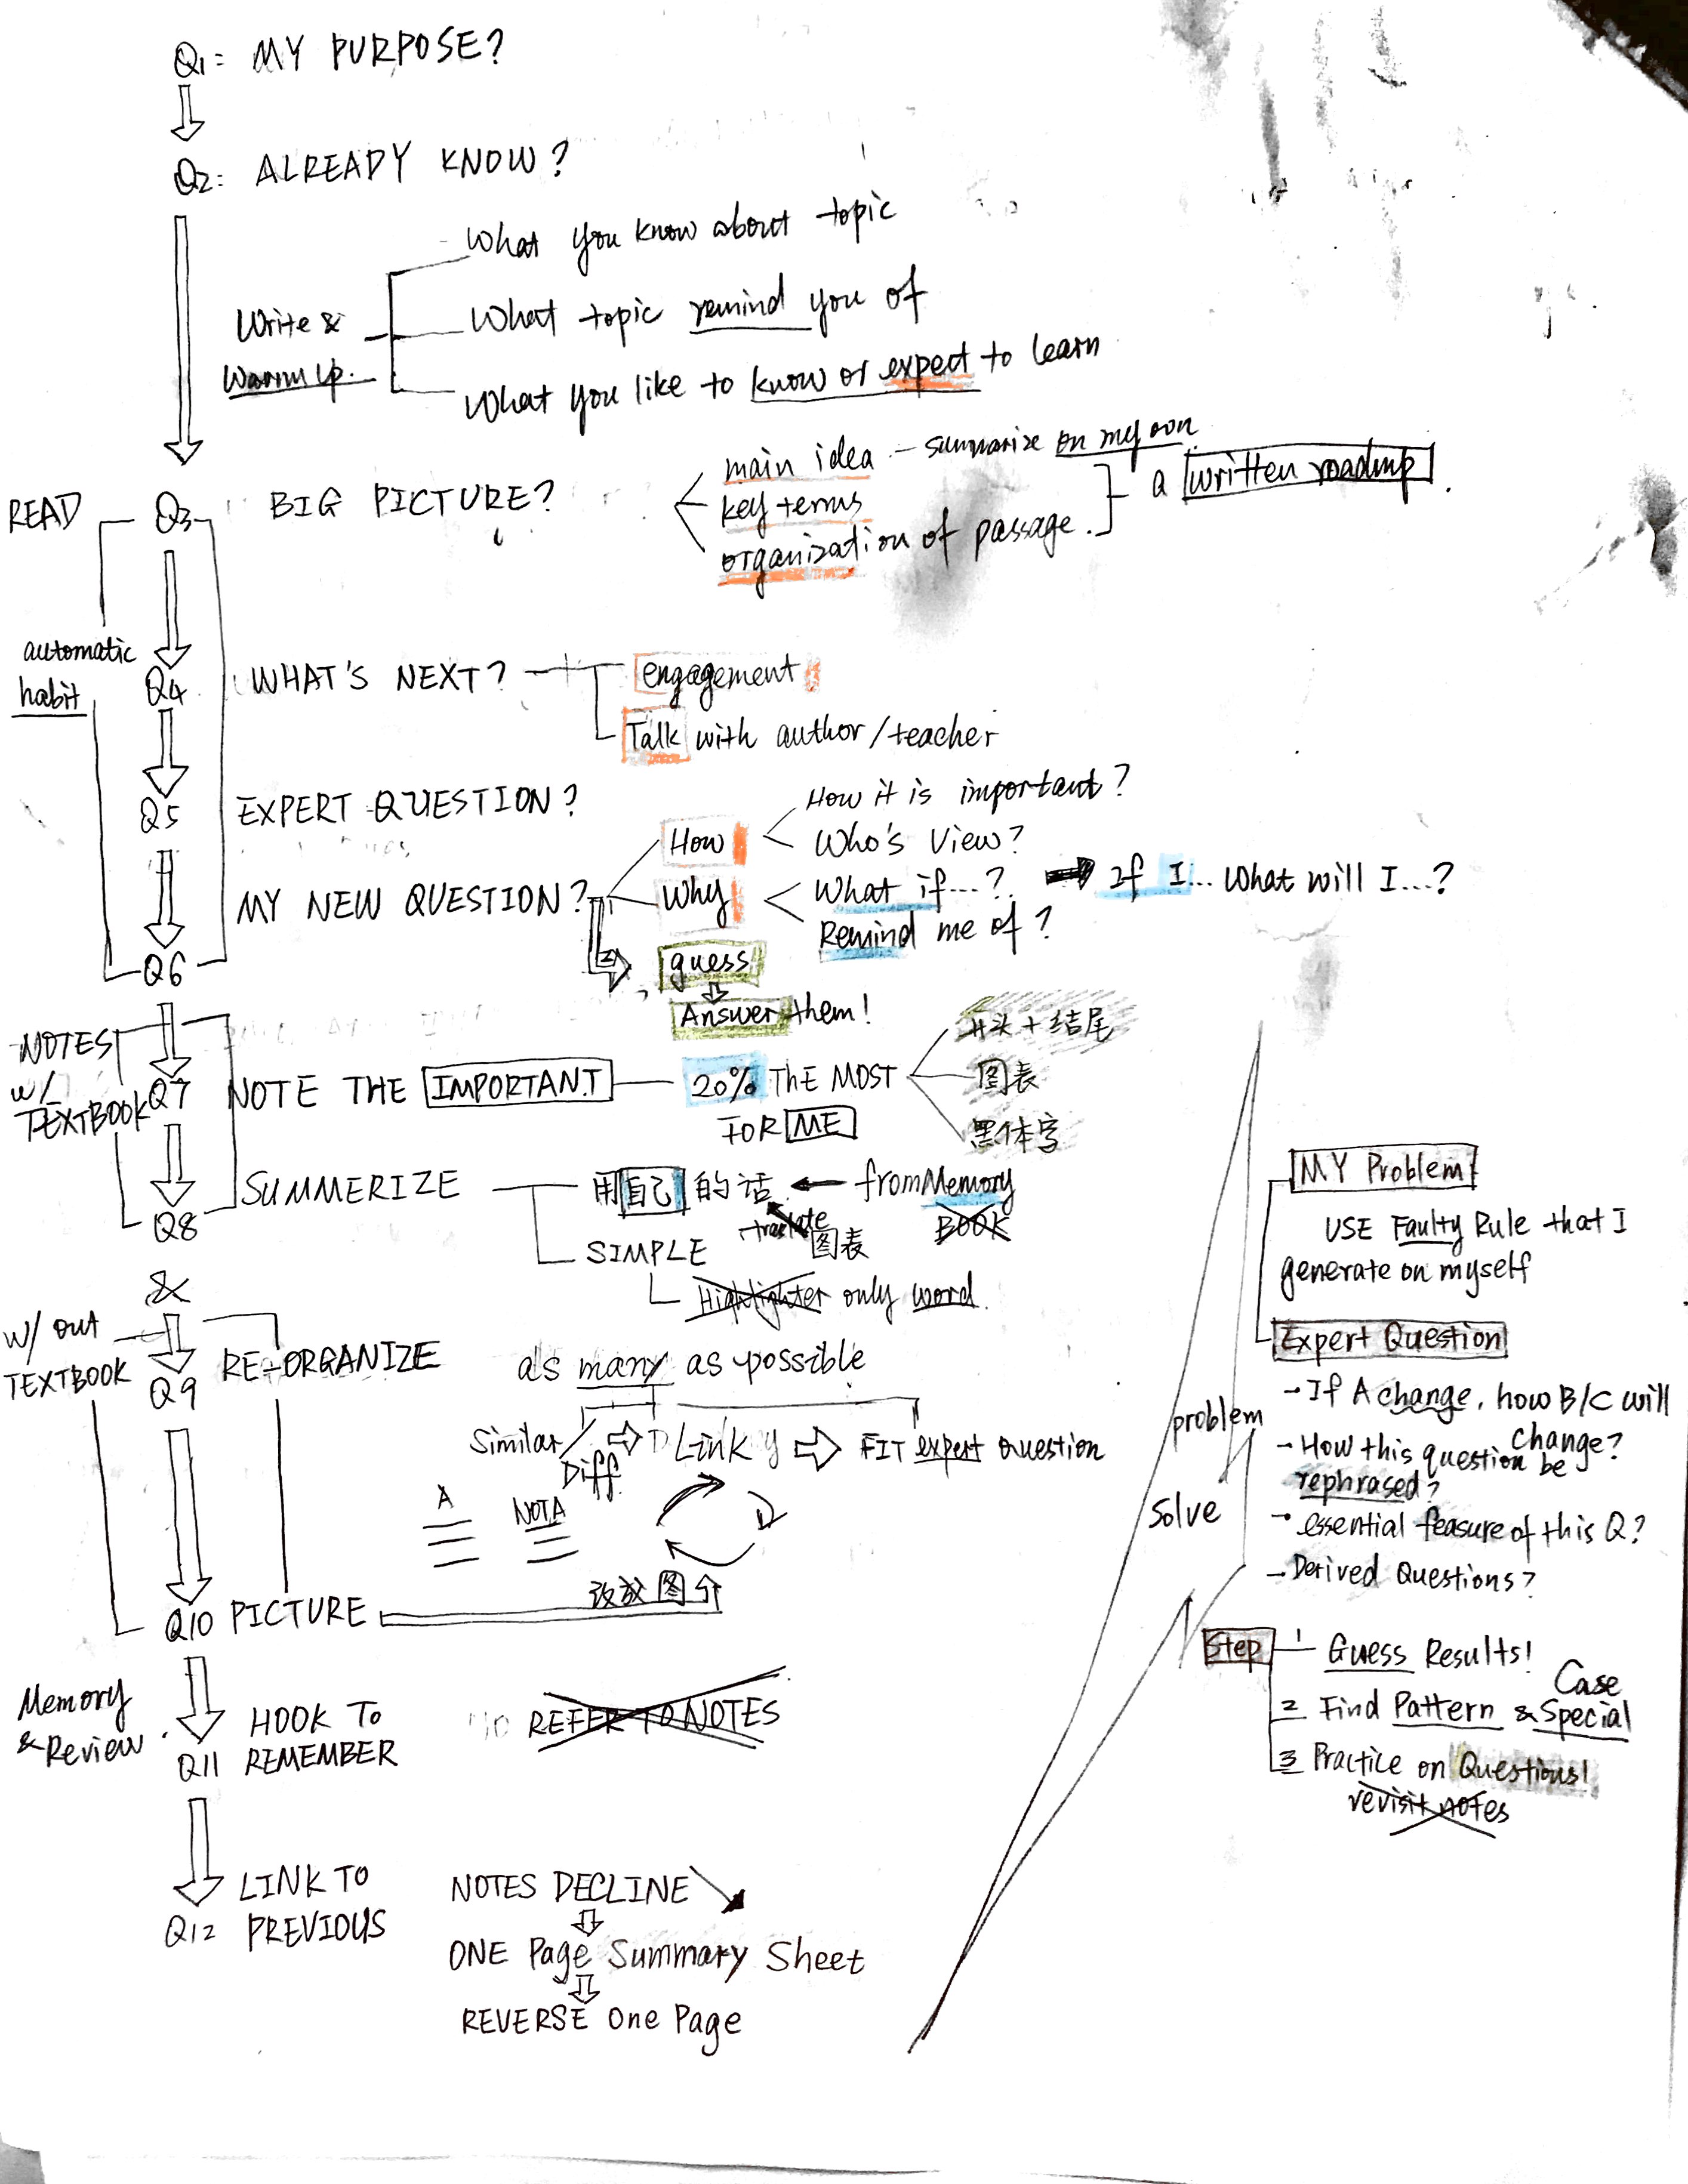 Q1: MY PURPOSE?
Q2: ALREADY KNOW?
Write &
Warm Up.
What you know about topic
What topic remind you of
What you like to know or expect to learn
READ
Q3
BIG PICTURE?
main idea - summarize on my own
key terms
organization of passage.
a written roadmap
automatic
habit
Q4
WHAT'S NEXT?
engagement
Talk with author/teacher
Q5
EXPERT QUESTION?
MY NEW QUESTION?
How
How it is important?
Who's View?
Why
What if...?
If I... What will I...?
Remind me of?
Q6
guess
Answer them!
NOTES
w/
TEXTBOOK
Q7
NOTE THE IMPORTANT
20% THE MOST
FOR ME
开头+结尾
图表
黑体字
Q8
SUMMERIZE
用自己的话
from Memory
BOOK
translate
图表
SIMPLE
Highlighter only word
&
w/ out
TEXTBOOK
Q9
RE-ORGANIZE
as many as possible
Similar/
Diff.
Link
FIT expert question
A
NOT A
Q10 PICTURE
图
Memory
& Review.
Q11
HOOK TO
REMEMBER
REFER TO NOTES
Q12
LINK TO
PREVIOUS
NOTES DECLINE
ONE Page Summary Sheet
REVERSE One Page
problem
solve
MY Problem
USE Faulty Rule that I
generate on myself
Expert Question
- If A change, how B/C will
change?
- How this question be
rephrased?
- essential feasure of this Q?
- Derived Questions?
Step
1 Guess Results!
2 Find Pattern & Special
Case
3 Practice on Questions!
revisit notes